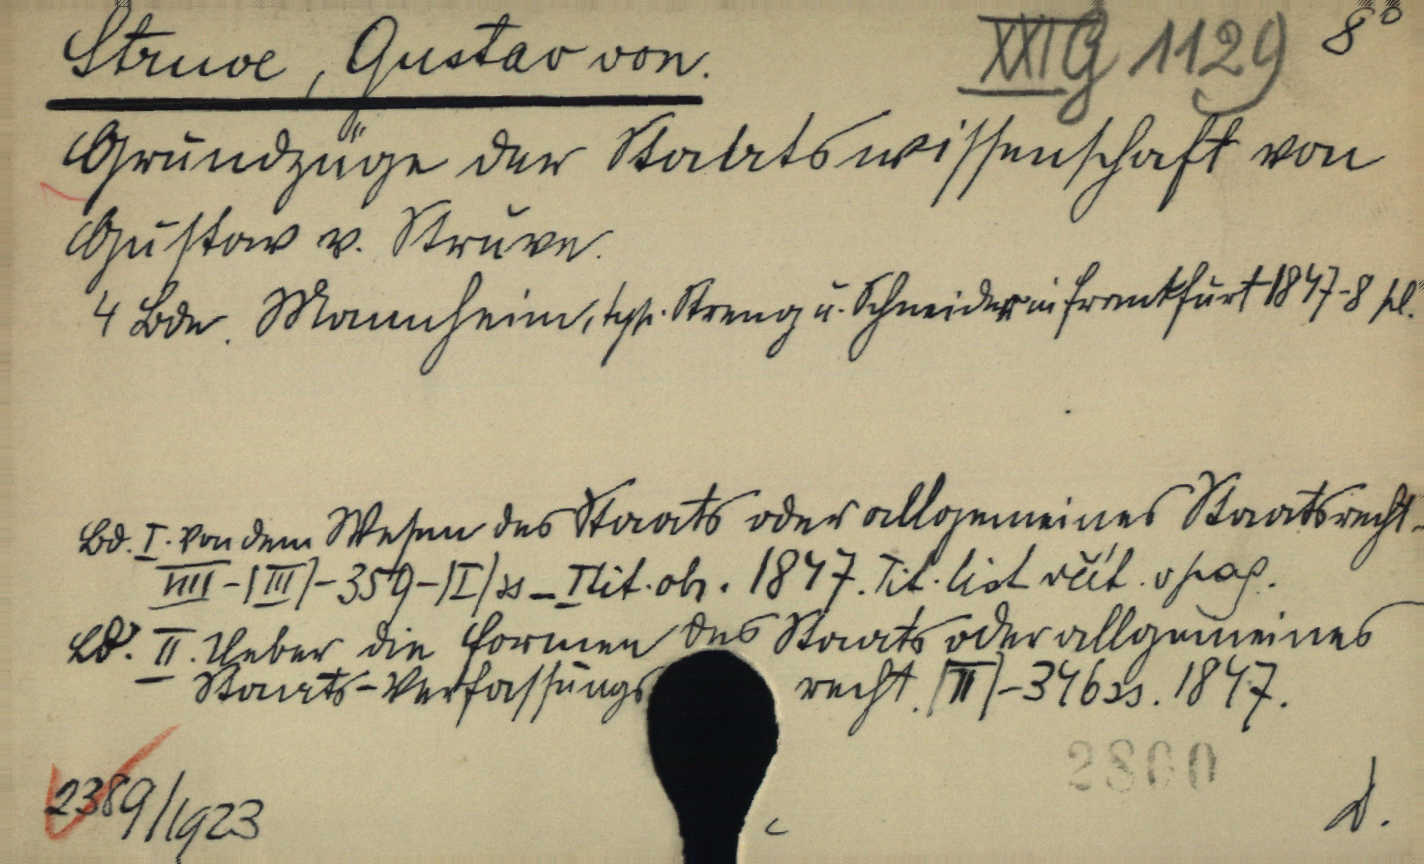 Struve, Gustav von.
XXI G 1129
8°
Grundzüge der Staatswissenschaft von
Gustav v. Struve.
4 Bde. Mannheim, typ. Streng u. Schneider in Frankfurt 1847-8 pl.
Bd. I. Von dem Wesen des Staats oder allgemeines Staatsrecht.
VIII-|III|-359-|I| ss - I tit. obr. 1847. Tit. list včít. v pag.
Bd. II. Ueber die Formen des Staats oder allgemeines
Staats-Verfassungs recht. |II|-346 ss. 1847.
2800
2389/1923
d.